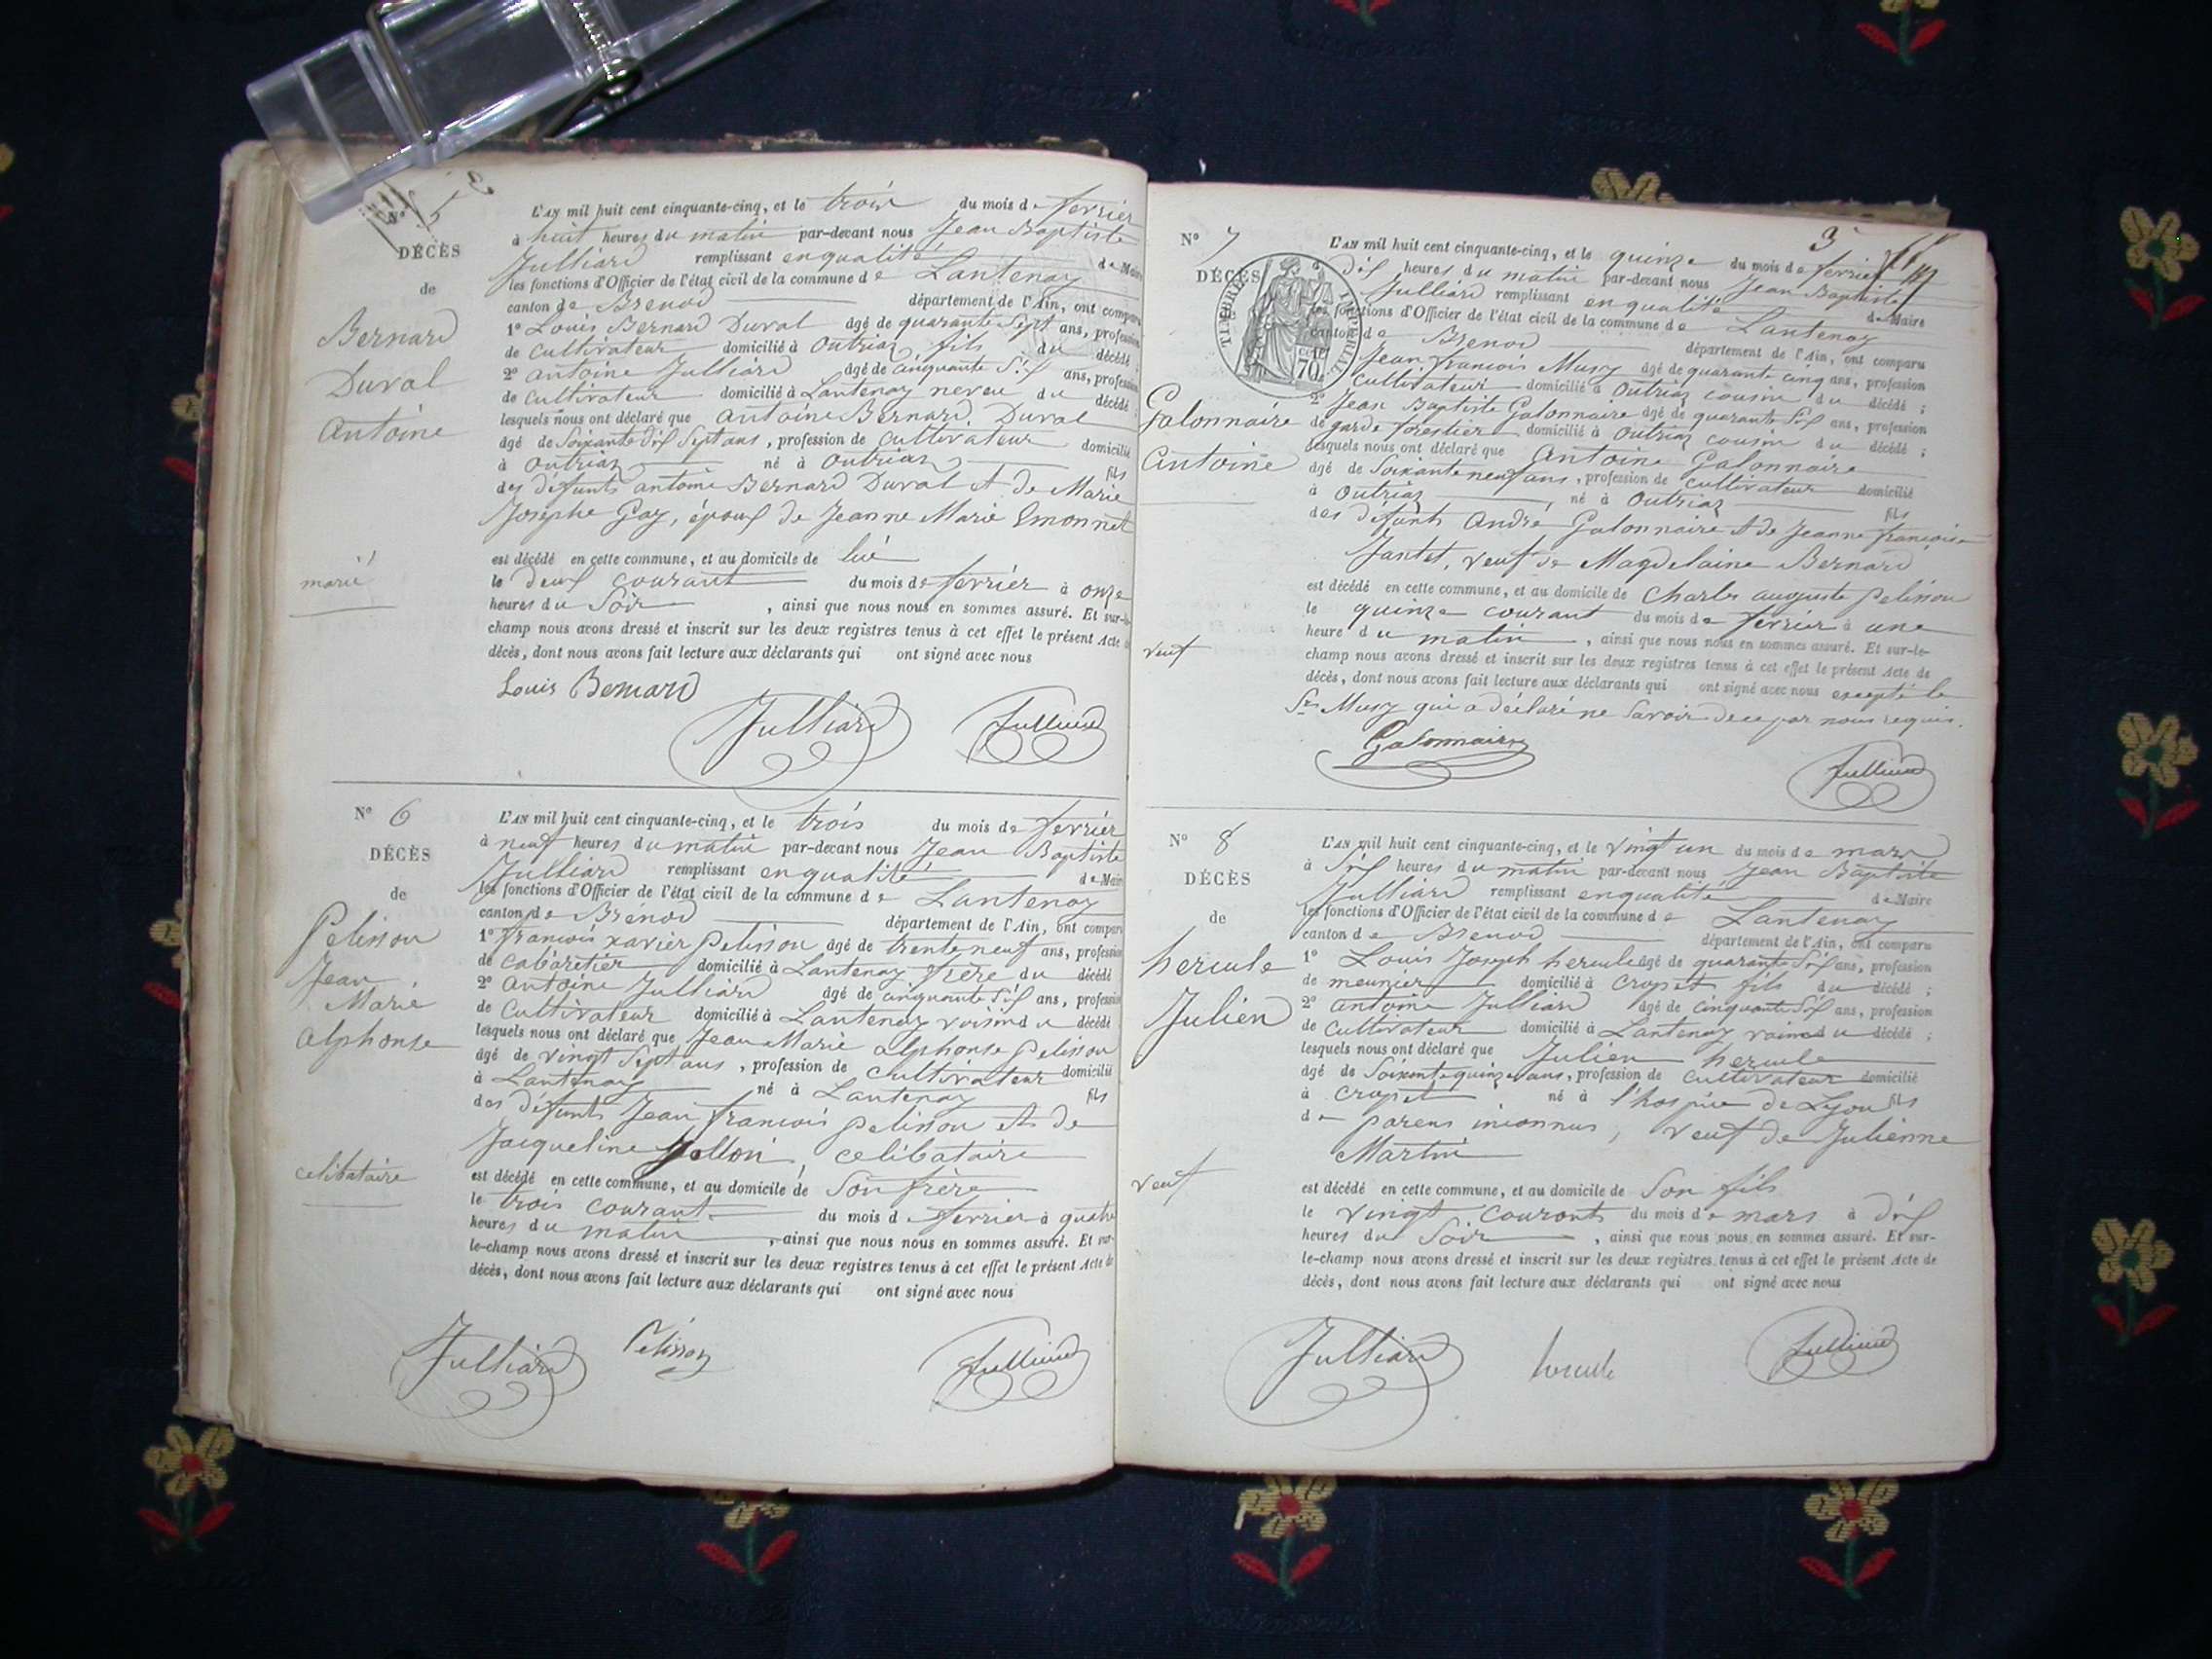 N° 5
DÉCÈS
de
Bernard
Duval
Antoine
marié
L'AN mil huit cent cinquante-cinq, et le trois du mois de fevrier
à huit heures du matin par-devant nous Jean Baptiste
Julliard remplissant en qualité de Maire
les fonctions d'Officier de l'état civil de la commune de Lantenay
canton de Brenod département de l'Ain, ont comparu
1° Louis Bernard Duval âgé de quarante Sept ans, profession
de cultivateur domicilié à Outriaz fils du décédé
2° antoine Julliard âgé de cinquante Six ans, profession
de cultivateur domicilié à Lantenay neveu du décédé
lesquels nous ont déclaré que antoine Bernard Duval
âgé de Soixante dix Sept ans, profession de cultivateur domicilié
à Outriaz né à Outriaz fils
des défunts antoine Bernard Duval et de Marie
Josephe Gay, époux de Jeanne Marie Emonnet
est décédé en cette commune, et au domicile de lui
le deux courant du mois de fevrier à onze
heures du Soir, ainsi que nous nous en sommes assuré. Et sur-le-
champ nous avons dressé et inscrit sur les deux registres tenus à cet effet le présent Acte de
décès, dont nous avons fait lecture aux déclarants qui ont signé avec nous
Louis Bernard
Julliard Julliard
N° 6
DÉCÈS
de
Pelisson
Jean
Marie
alphonse
celibataire
L'AN mil huit cent cinquante-cinq, et le trois du mois de fevrier
à neuf heures du matin par-devant nous Jean Baptiste
Julliard remplissant en qualité de Maire
les fonctions d'Officier de l'état civil de la commune de Lantenay
canton de Brénod département de l'Ain, ont comparu
1° francois xavier Pelisson âgé de trente neuf ans, profession
de cabaretier domicilié à Lantenay frère du décédé
2° antoine Julliard âgé de cinquante Six ans, profession
de cultivateur domicilié à Lantenay voisin du décédé
lesquels nous ont déclaré que Jean Marie alphonse pelisson
âgé de vingt Sept ans, profession de cultivateur domicilié
à Lantenay né à Lantenay fils
des défunts Jean francois pelisson et de
Jacqueline celibataire
est décédé en cette commune, et au domicile de Son frère
le trois courant du mois de fevrier à quatre
heures du matin, ainsi que nous nous en sommes assuré. Et sur-
le-champ nous avons dressé et inscrit sur les deux registres tenus à cet effet le présent Acte de
décès, dont nous avons fait lecture aux déclarants qui ont signé avec nous
Julliard Pelisson Julliard
3
N° 7
DÉCÈS
TIMBRE IMPERIAL
70
Galonnaire
Antoine
veuf
L'AN mil huit cent cinquante-cinq, et le quinze du mois de fevrier
à dix heures du matin par-devant nous Jean Baptiste
Julliard remplissant en qualité de Maire
les fonctions d'Officier de l'état civil de la commune de Lantenay
canton de Brenod département de l'Ain, ont comparu
1° Jean francois Musy âgé de quarante cinq ans, profession
cultivateur domicilié à Outriaz cousin du décédé ;
2° Jean Baptiste Galonnaire âgé de quarante Six ans, profession
de garde forestier domicilié à Outriaz cousin du décédé ;
lesquels nous ont déclaré que Antoine Galonnaire
âgé de Soixante neuf ans, profession de cultivateur domicilié
à Outriaz, né à Outriaz fils
des défunts André Galonnaire et de Jeanne françoise
Jantet, veuf de Magdelaine Bernard
est décédé en cette commune, et au domicile de Charles auguste pelisson
le quinze courant du mois de fevrier à une
heure du matin, ainsi que nous nous en sommes assuré. Et sur-le-
champ nous avons dressé et inscrit sur les deux registres tenus à cet effet le présent Acte de
décès, dont nous avons fait lecture aux déclarants qui ont signé avec nous excepté le
Sr. Musy qui a déclaré ne Savoir de ce par nous requis.
Galonnaire
Julliard
N° 8
DÉCÈS
de
hercule
Julien
veuf
L'AN mil huit cent cinquante-cinq, et le vingt un du mois de mars
à Six heures du matin par-devant nous Jean Baptiste
Julliard remplissant en qualité de Maire
les fonctions d'Officier de l'état civil de la commune de Lantenay
canton de Brenod département de l'Ain, ont comparu
1° Louis Joseph hercule âgé de quarante Six ans, profession
de meunier domicilié à Cropet fils du décédé ;
2° antoine Julliard âgé de cinquante Six ans, profession
de cultivateur domicilié à Lantenay voisin du décédé ;
lesquels nous ont déclaré que Julien hercule
âgé de Soixante quinze ans, profession de cultivateur domicilié
à Cropet né à l'hospice de Lyon fils
de parens inconnus, veuf de Julienne
Martin
est décédé en cette commune, et au domicile de Son fils
le vingt courant du mois de mars à dix
heures du Soir, ainsi que nous nous en sommes assuré. Et sur-
le-champ nous avons dressé et inscrit sur les deux registres tenus à cet effet le présent Acte de
décès, dont nous avons fait lecture aux déclarants qui ont signé avec nous
Julliard hercule Julliard